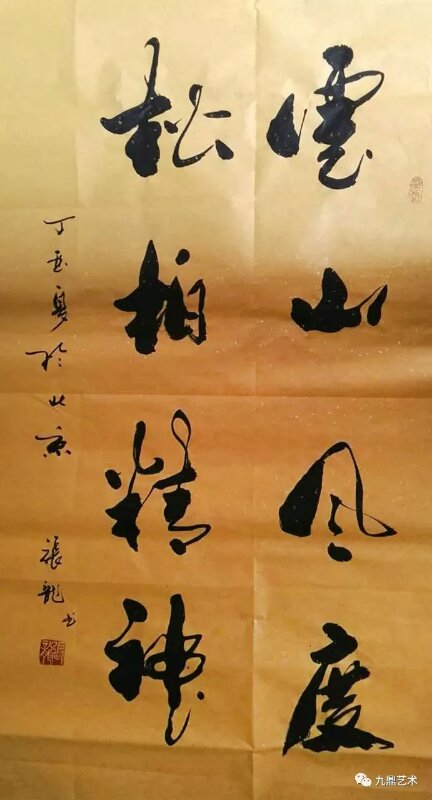 雲山风度
松柏精神
丁酉夏於北京
張龍书
九鼎艺术